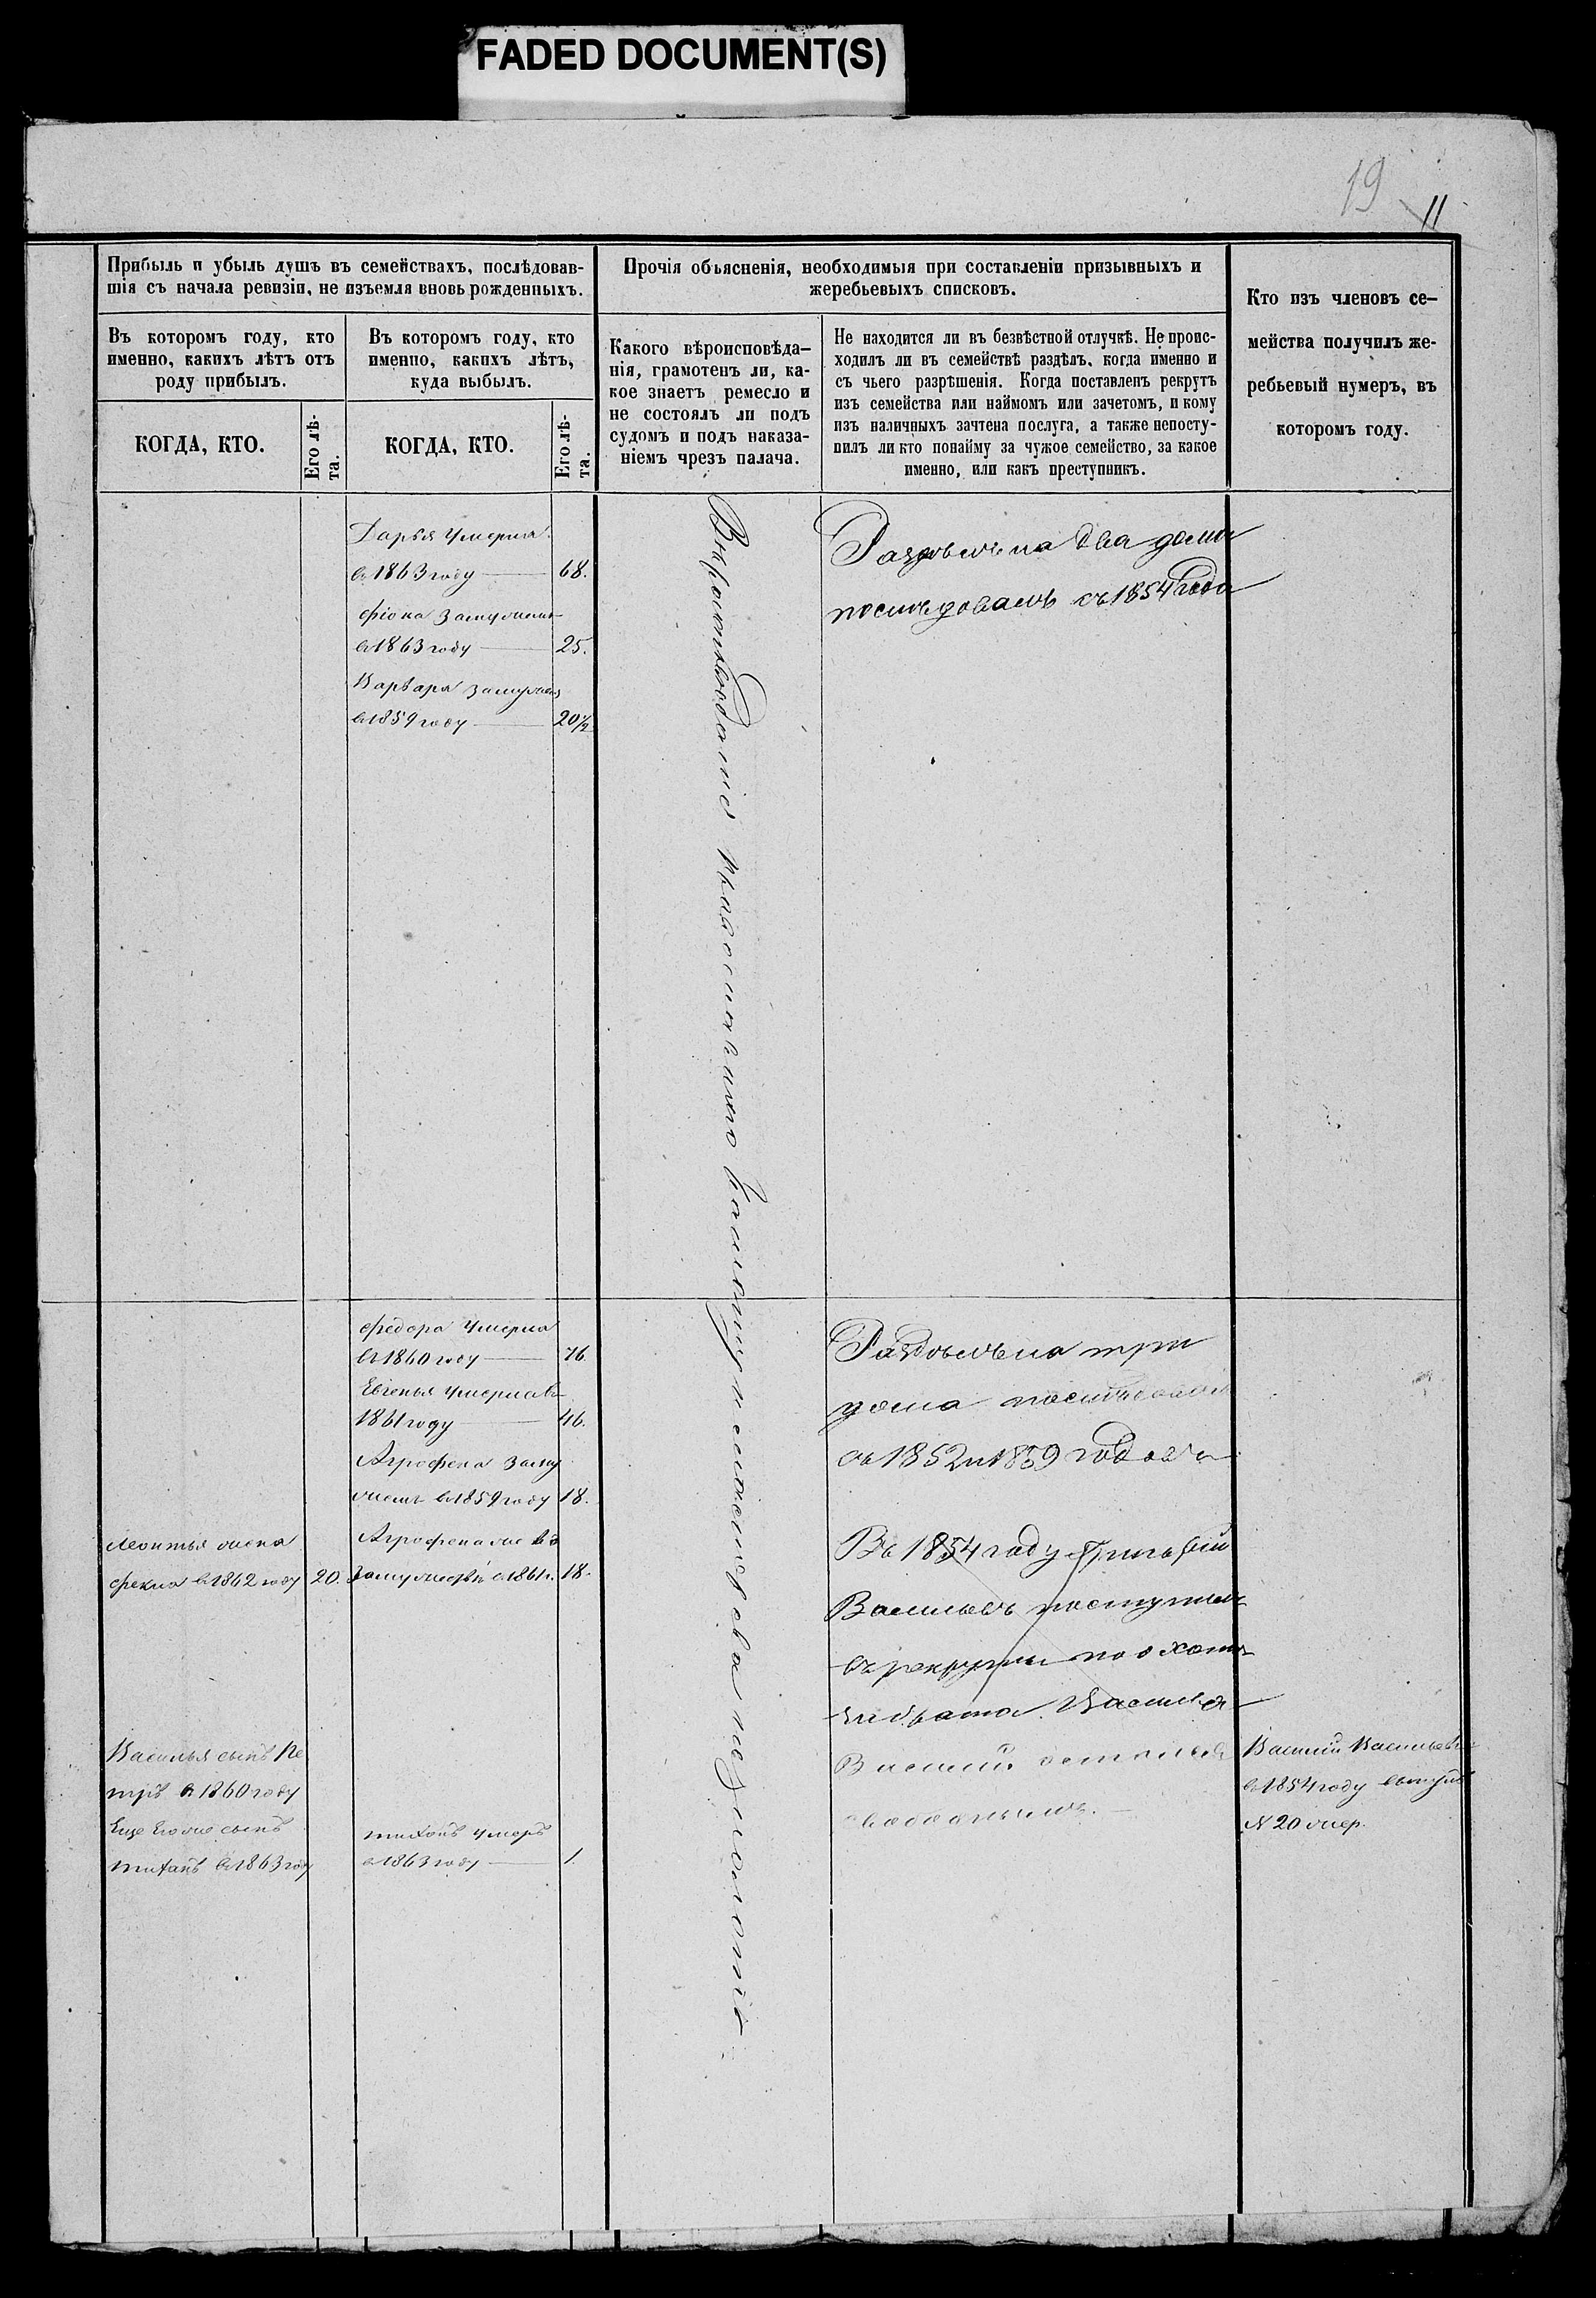 FADED DOCUMENT(S)
19
11
Прибыль и убыль душъ въ семействахъ, послѣдовав-
шія съ начала ревизіи, не изъемля вновь рожденныхъ.
Въ которомъ году, кто
именно, какихъ лѣтъ отъ
роду прибылъ.
КОГДА, КТО.
Его лѣ-
та.
Въ которомъ году, кто
именно, какихъ лѣтъ,
куда выбылъ.
КОГДА, КТО.
Его лѣ-
та.
Прочія объясненія, необходимыя при составленіи призывныхъ и
жеребьевыхъ списковъ.
Какого вѣроисповѣда-
нія, грамотенъ ли, ка-
кое знаетъ ремесло и
не состоялъ ли подъ
судомъ и подъ наказа-
ніемъ чрезъ палача.
Не находится ли въ безвѣстной отлучкѣ. Не проис-
ходилъ ли въ семействѣ раздѣлъ, когда именно и
съ чьего разрѣшенія. Когда поставленъ рекрутъ
изъ семейства или наймомъ или зачетомъ, и кому
изъ наличныхъ зачтена послуга, а также непосту-
пилъ ли кто понайму за чужое семейство, за какое
именно, или какъ преступникъ.
Кто изъ членовъ се-
мейства получилъ же-
ребьевый нумеръ, въ
которомъ году.
Дарья Умерла
въ 1863 году 68.
Фіона Замужемъ
въ 1863 году 25.
Варвара замужемъ
въ 1859 году 20½
Вѣроисповѣданія православнаго
Раздѣлъ на два дома
послѣдовалъ съ 1854 года
Федора Умерла
въ 1860 году 76.
Евгенья Умерла въ
1861 году 46.
Агрофена Заму
жемъ въ 1859 году 18.
Агрофена
Замужемъ въ 1861 г. 18.
Леонтья жена
Фекла въ 1862 году 20.
Василья сынъ Пе
тръ въ 1860 году
Еще Его же сынъ
тихонъ въ 1863 году
тихонъ умеръ
въ 1863 году 1.
Раздѣлъ на три
дома послѣдовалъ
съ 1852 и 1859 годовъ
Въ 1854 году Григорій
Васильевъ поступилъ
въ рекруты по охотѣ
за брата Василья
Василій остался
свободнымъ.
Василій Васильевъ
въ 1854 году вынулъ
№ 20 жер.